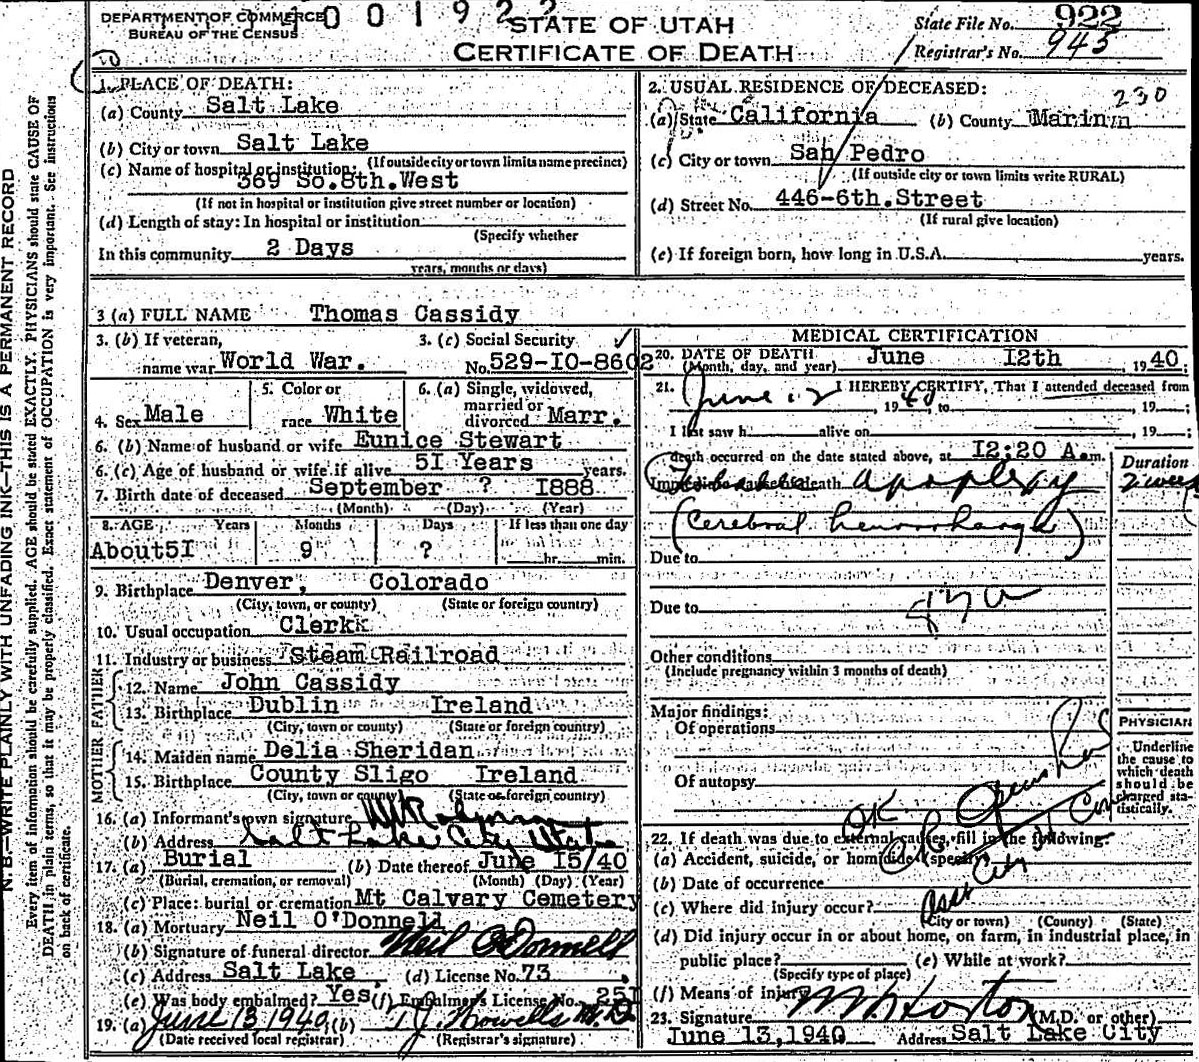 DEPARTMENT OF COMMERCE
BUREAU OF THE CENSUS
0 0 1 9 2 2
STATE OF UTAH
CERTIFICATE OF DEATH
State File No. 922
Registrar's No. 943
N. B.—WRITE PLAINLY WITH UNFADING INK—THIS IS A PERMANENT RECORD
Every item of information should be carefully supplied. AGE should be stated EXACTLY. PHYSICIANS should state CAUSE OF
DEATH in plain terms, so that it may be properly classified. Exact statement of OCCUPATION is very important. See instructions
on back of certificate.
1. PLACE OF DEATH:
(a) County Salt Lake
(b) City or town Salt Lake
(If outside city or town limits name precinct)
(c) Name of hospital or institution:
569 So.8th.West
(If not in hospital or institution give street number or location)
(d) Length of stay: In hospital or institution
(Specify whether
In this community 2 Days
years, months or days)
2. USUAL RESIDENCE OF DECEASED:
230
(a) State California (b) County Marinn
(c) City or town San Pedro
(If outside city or town limits write RURAL)
(d) Street No. 446-6th.Street
(If rural give location)
(e) If foreign born, how long in U.S.A. years.
3 (a) FULL NAME Thomas Cassidy
3. (b) If veteran, name war World War.
3. (c) Social Security No. 529-IO-8602
4. Sex Male
5. Color or race White
6. (a) Single, widowed, married or divorced Marr.
6. (b) Name of husband or wife Eunice Stewart
6. (c) Age of husband or wife if alive 5I Years years.
7. Birth date of deceased September ? I888
(Month) (Day) (Year)
8. AGE Years Months Days If less than one day
About5I 9 ? hr. min.
9. Birthplace Denver, Colorado
(City, town, or county) (State or foreign country)
10. Usual occupation Clerk
11. Industry or business Steam Railroad
FATHER
12. Name John Cassidy
13. Birthplace Dublin Ireland
(City, town or county) (State or foreign country)
MOTHER
14. Maiden name Delia Sheridan
15. Birthplace County Sligo Ireland
(City, town or county) (State or foreign country)
16. (a) Informant's own signature
(b) Address Salt Lake City Utah
17. (a) Burial (b) Date thereof June I5/40
(Burial, cremation, or removal) (Month) (Day) (Year)
(c) Place: burial or cremation Mt Calvary Cemetery
18. (a) Mortuary Neil O'Donnell
(b) Signature of funeral director Neil O'Donnell
(c) Address Salt Lake (d) License No. 73
(e) Was body embalmed? Yes (f) Embalmer's License No. 25I
19. (a) June 13, 1940 (b) T. J. Howells M.D.
(Date received local registrar) (Registrar's signature)
MEDICAL CERTIFICATION
20. DATE OF DEATH June I2th 1940;
(Month, day, and year)
21. I HEREBY CERTIFY, That I attended deceased from
June 12, 1940, to , 19 ;
I last saw h alive on , 19 ;
death occurred on the date stated above, at I2:20 A.m.
Immediate cause of death apoplexy
(Cerebral hemorrhage)
Duration
2 weeks
Due to
Due to
Other conditions
(Include pregnancy within 3 months of death)
Major findings:
Of operations
Of autopsy
PHYSICIAN
Underline
the cause to
which death
should be
charged sta-
tistically.
OK
22. If death was due to external causes, fill in the following:
(a) Accident, suicide, or homicide (specify)
(b) Date of occurrence
(c) Where did injury occur?
(City or town) (County) (State)
(d) Did injury occur in or about home, on farm, in industrial place, in
public place? (e) While at work?
(Specify type of place)
(f) Means of injury
23. Signature (M.D. or other)
June 13,1940 Address Salt Lake City